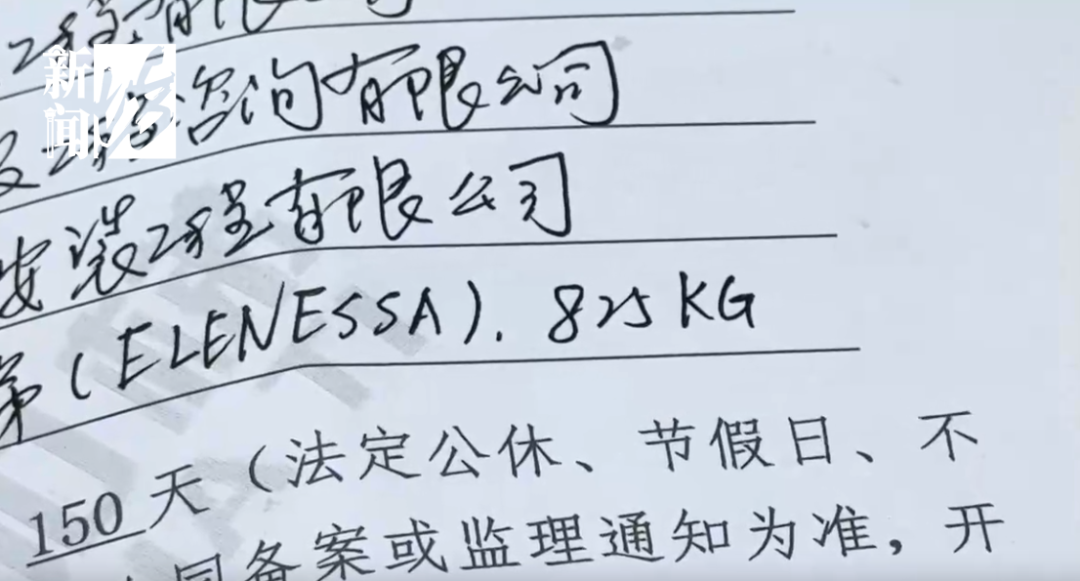 工程有限公司
新闻坊
及工程咨询有限公司
安装工程有限公司
第(ELENESSA). 825KG
150天（法定公休、节假日、不
同备案或监理通知为准，开